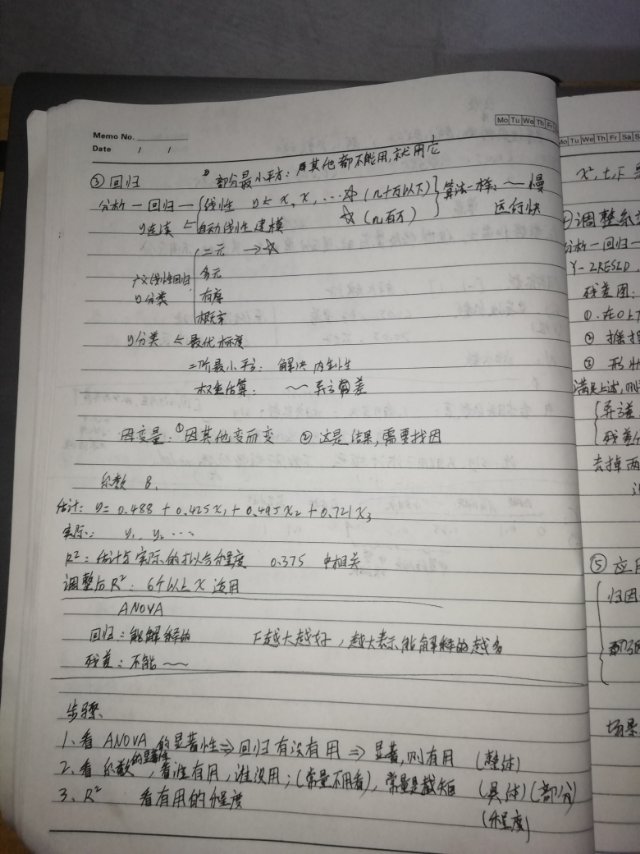 Memo No.
Date / /
Mo Tu We Th Fr
③ 回归
部分最小平方：其他都不能用,就用它
分析一回归一 线性 y ← x, x, ... ☆ (几十万以下) 算法一样, ~ 慢
y连续 ← 自动线性建模 ☆ (几百万) 运行快
二元 → ☆
广义线性回归 多元
y分类 有序
概率
y分类 ← 最优标度
二阶最小平方： 解决内生性
权重估算： ~~ 异方差
因变量：①因其他变而变 ②这是结果,需要找因
系数 B.
估计： y = 0.488 + 0.425x₁ + 0.495x₂ + 0.721x₃
实际： y₁ y₂ ...
R²：估计与实际的拟合程度 0.375 中相关
调整后R²： 6个以上x适用
ANOVA
回归：能解释的 F越大越好，越大表示能解释的越多
残差：不能 ~~
步骤
1、看 ANOVA 的显著性 ⇒ 回归有没有用 ⇒ 显著,则有用 (整体)
2、看系数的显著性，看谁有用，谁没用；(常量不用看)，常量是截距 (具体)(部分)
3、R² 看有用的程度 (程度)
Mo Tu We Th Fr Sa S
x², t, F
调整
分析一回归一
Y - ZRESID
残差图：
①. 在0上
②
③ 形状
满足上述,则
异方差
残差
去掉两
⑤ 应用
归因
场景